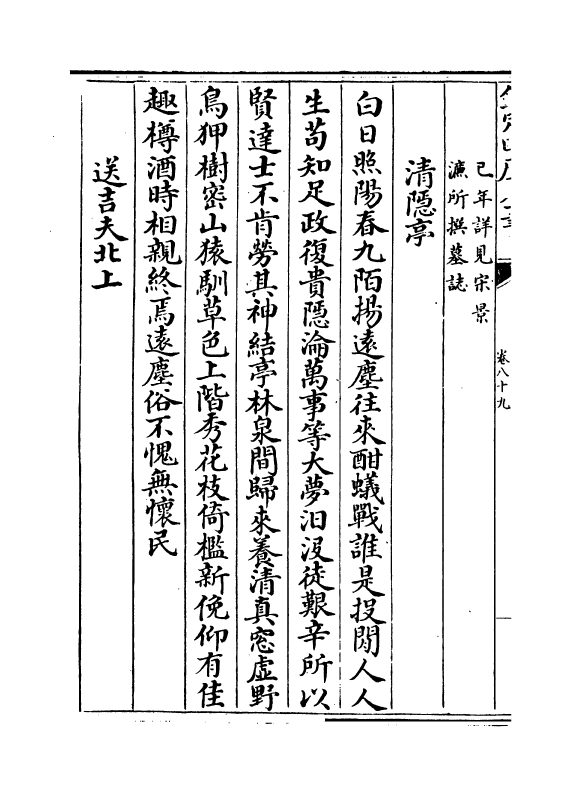 欽定四庫全書
卷八十九
己年詳見宋景
濂所撰墓誌
清隱亭
白日照陽春九陌揚遠塵往來酣蟻戰誰是投閒人人
生苟知足政復貴隱淪萬事等大夢汨没徒艱辛所以
賢達士不肯勞其神結亭林泉間歸來養清真窓虚野
鳥狎樹密山猿馴草色上階秀花枝倚檻新俛仰有佳
趣樽酒時相親終焉遠塵俗不愧無懷民
送吉夫北上